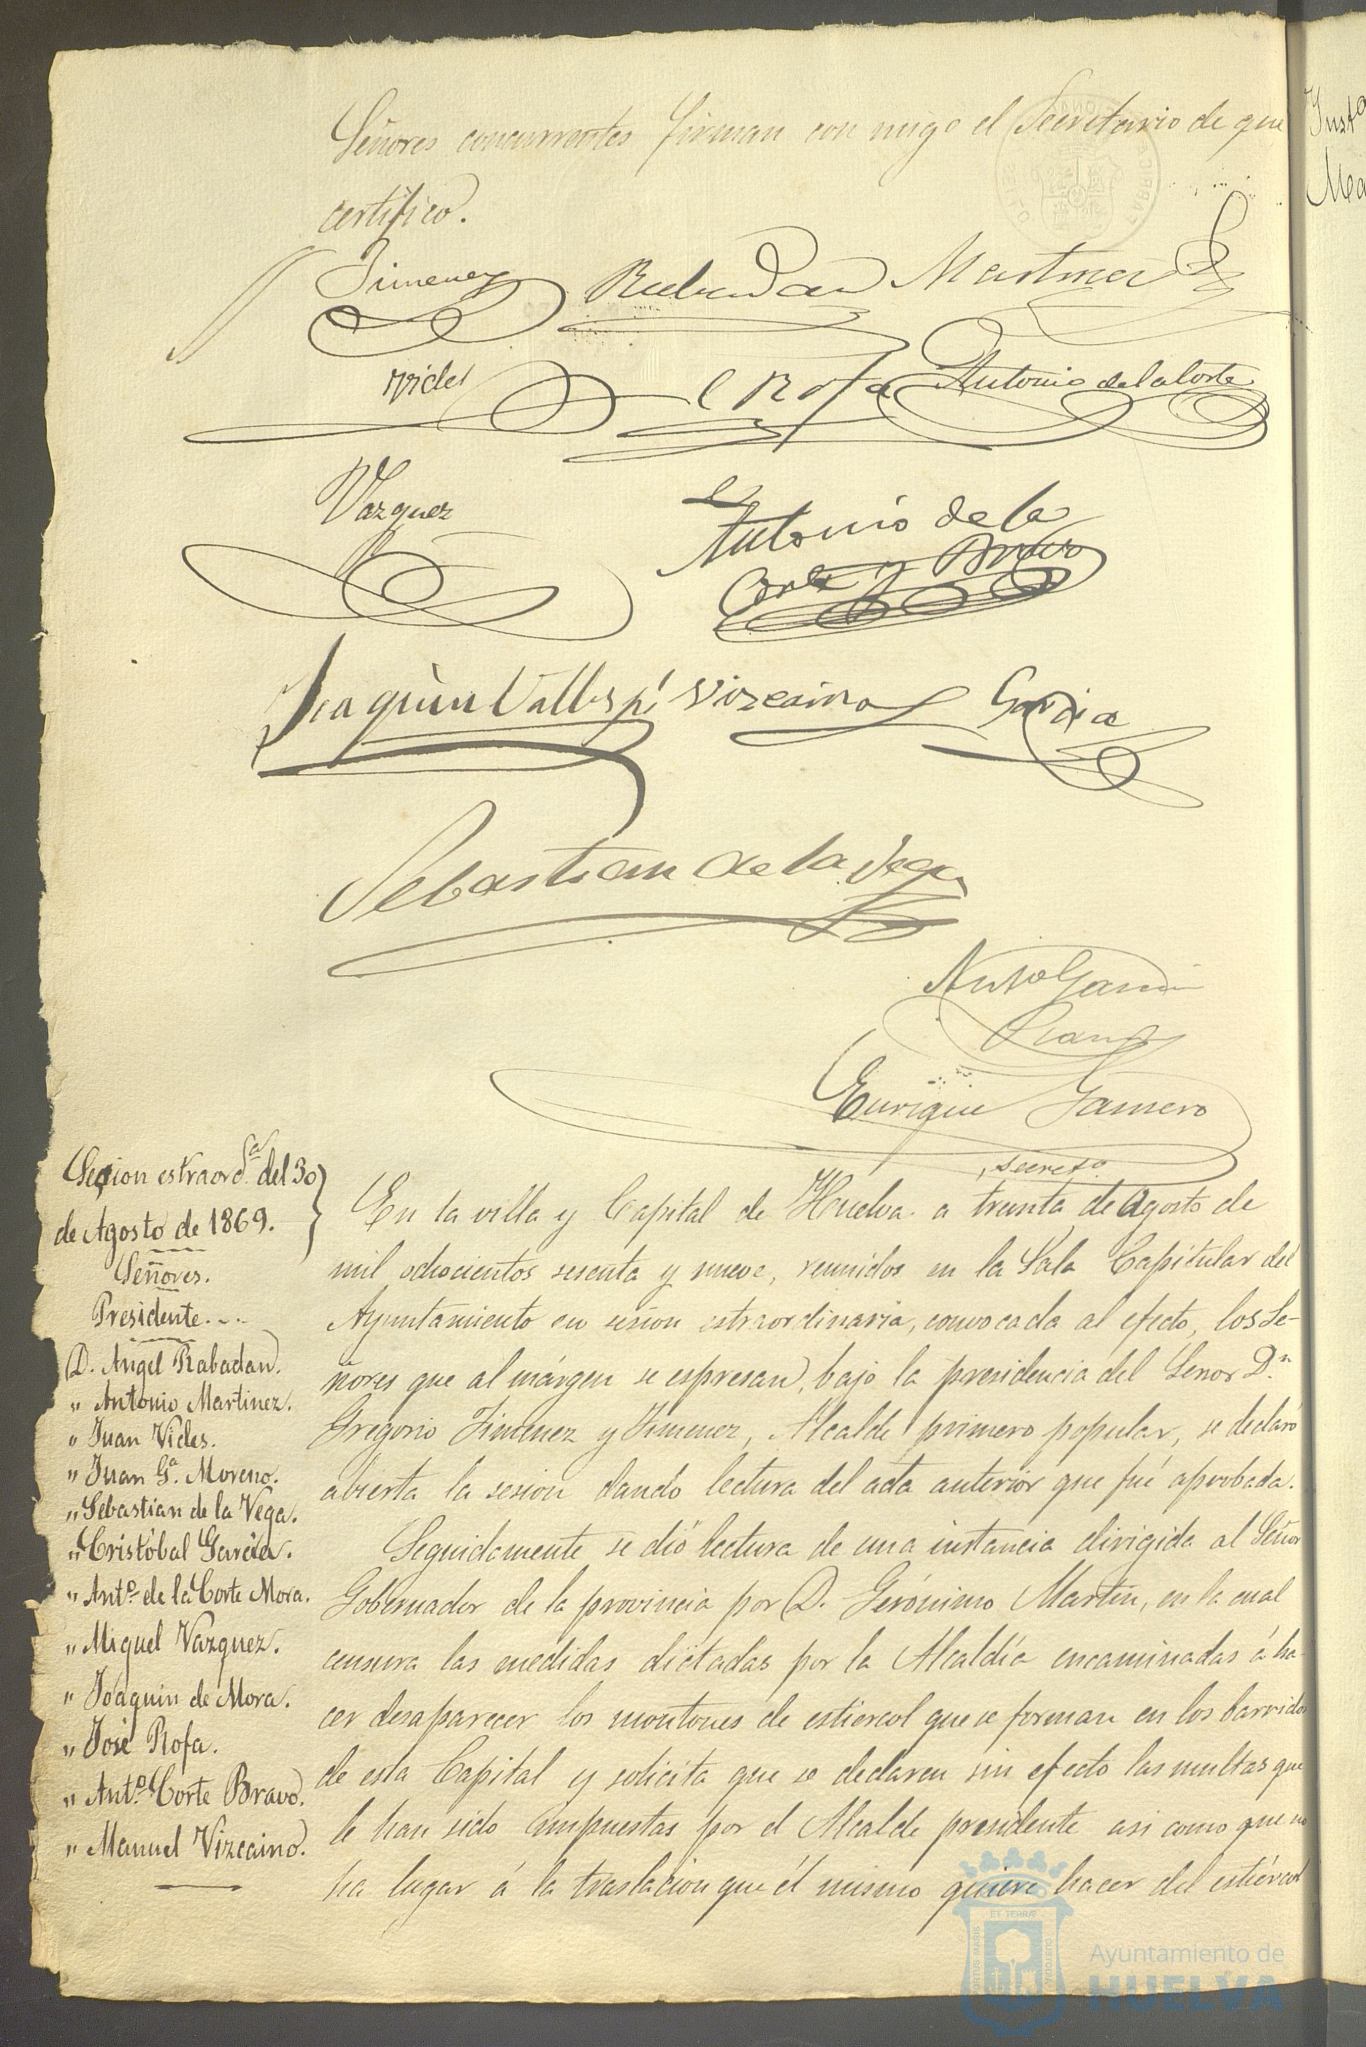 Señores concurrentes firman con migo el Secretario de que
certifico.
Jimenez Rabadan Martinez
Vides J Rofa Antonio de la Corte
Vazquez
Antonio de la
Corte y Bravo
Joaquin Vallespí Vizcaino Garcia
Sebastian de la Vega
Antº Garcia
Enrique Gamero
Secretº
Sesion estraordª del 30
de Agosto de 1869.
Señores.
Presidente...
D. Angel Rabadan.
" Antonio Martinez.
" Juan Vides.
" Juan Gª Moreno.
" Sebastian de la Vega.
" Cristóbal Garcia.
" Antº de la Corte Mora.
" Miguel Vazquez.
" Joaquin de Mora.
" José Rofa.
" Antº Corte Bravo.
" Manuel Vizcaino.
En la villa y Capital de Huelva a treinta de Agosto de
mil ochocientos sesenta y nueve, reunidos en la Sala Capitular del
Ayuntamiento en sesion estraordinaria, convocada al efecto, los Se-
ñores que al márgen se espresan, bajo la presidencia del Señor Dn
Gregorio Jimenez y Jimenez, Alcalde primero popular, se declaró
abierta la sesion dando lectura del acta anterior que fué aprobada.
Seguidamente se dió lectura de una instancia dirigida al Señor
Gobernador de la provincia por D. Gerónimo Martin, en la cual
censura las medidas dictadas por la Alcaldía encaminadas á ha-
cer desaparecer los montones de estiercol que se forman en los barridos
de esta Capital y solicita que se declaren sin efecto las multas que
le han sido impuestas por el Alcalde presidente asi como que no
ha lugar á la traslacion que él mismo quiere hacer del estiércol
Ayuntamiento de
HUELVA